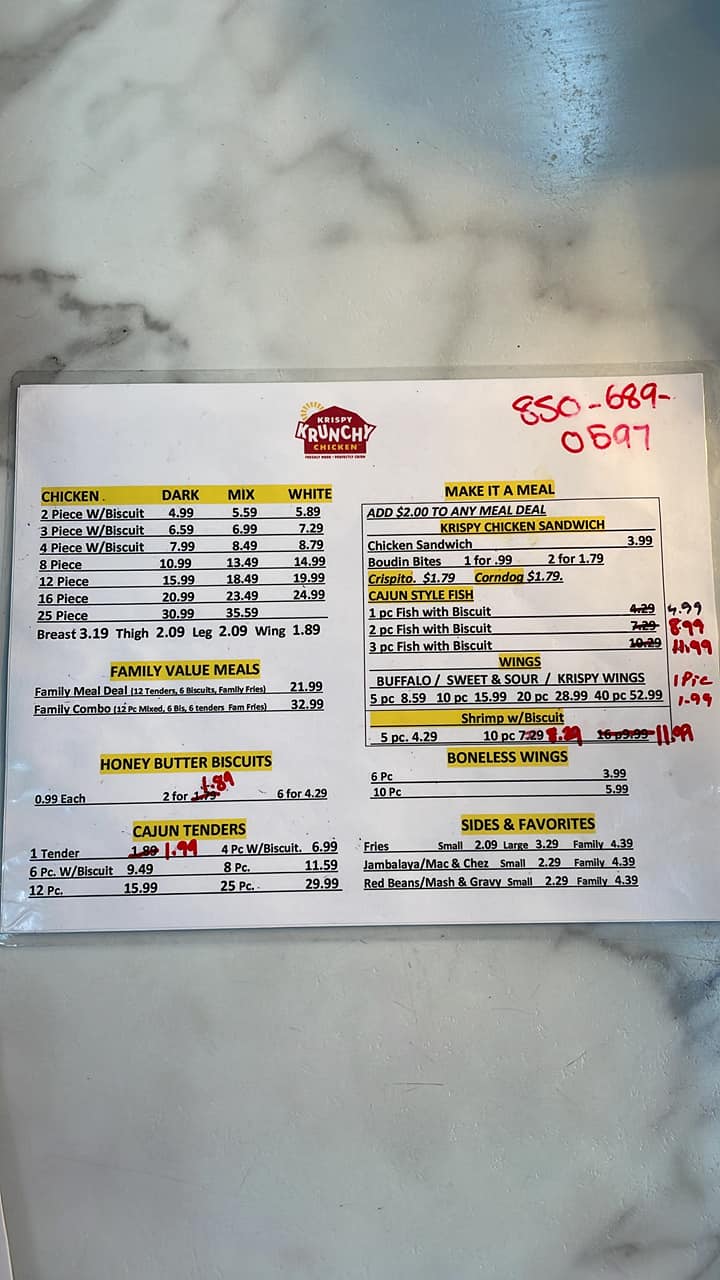 KRISPY
KRUNCHY
CHICKEN
FRESHLY MADE · PERFECTLY CAJUN
850-689-
0597
CHICKEN. DARK MIX WHITE
2 Piece W/Biscuit 4.99 5.59 5.89
3 Piece W/Biscuit 6.59 6.99 7.29
4 Piece W/Biscuit 7.99 8.49 8.79
8 Piece 10.99 13.49 14.99
12 Piece 15.99 18.49 19.99
16 Piece 20.99 23.49 24.99
25 Piece 30.99 35.59
Breast 3.19 Thigh 2.09 Leg 2.09 Wing 1.89
FAMILY VALUE MEALS
Family Meal Deal (12 Tenders, 6 Biscuits, Family Fries) 21.99
Family Combo (12 Pc Mixed, 6 Bis, 6 tenders Fam Fries) 32.99
HONEY BUTTER BISCUITS
0.99 Each 2 for 1.79 1.89 6 for 4.29
CAJUN TENDERS
1 Tender 1.89 1.99 4 Pc W/Biscuit. 6.99
6 Pc. W/Biscuit 9.49 8 Pc. 11.59
12 Pc. 15.99 25 Pc. 29.99
MAKE IT A MEAL
ADD $2.00 TO ANY MEAL DEAL
KRISPY CHICKEN SANDWICH
Chicken Sandwich 3.99
Boudin Bites 1 for .99 2 for 1.79
Crispito. $1.79 Corndog $1.79.
CAJUN STYLE FISH
1 pc Fish with Biscuit 4.29 4.99
2 pc Fish with Biscuit 7.29 8.99
3 pc Fish with Biscuit 10.29 11.99
WINGS
BUFFALO / SWEET & SOUR / KRISPY WINGS 1 Pic
5 pc 8.59 10 pc 15.99 20 pc 28.99 40 pc 52.99 1.99
Shrimp w/Biscuit
5 pc. 4.29 10 pc 7.29 8.29 16 p9.99 11.99
BONELESS WINGS
6 Pc 3.99
10 Pc 5.99
SIDES & FAVORITES
Fries Small 2.09 Large 3.29 Family 4.39
Jambalaya/Mac & Chez Small 2.29 Family 4.39
Red Beans/Mash & Gravy Small 2.29 Family 4.39